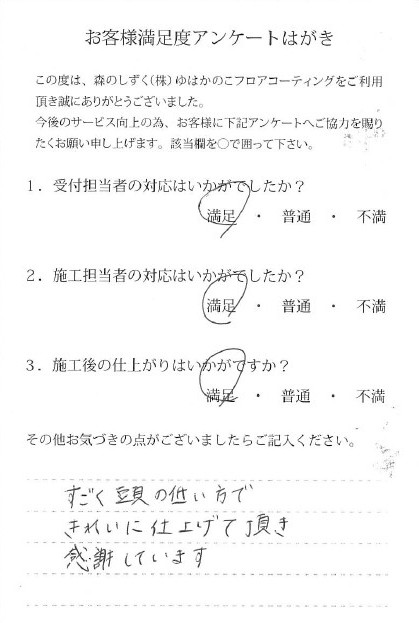 お客様満足度アンケートはがき
この度は、森のしずく(株)ゆはかのこフロアコーティングをご利用
頂き誠にありがとうございました。
今後のサービス向上の為、お客様に下記アンケートへご協力を賜り
たくお願い申し上げます。該当欄を○で囲って下さい。
1．受付担当者の対応はいかがでしたか？
満足 ・ 普通 ・ 不満
2．施工担当者の対応はいかがでしたか？
満足 ・ 普通 ・ 不満
3．施工後の仕上がりはいかがですか？
満足 ・ 普通 ・ 不満
その他お気づきの点がございましたらご記入ください。
すごく頭の低い方で
きれいに仕上げて頂き
感謝しています